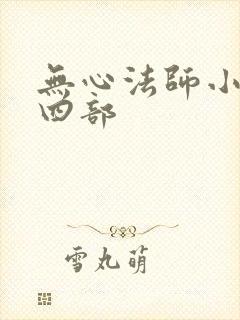 無心法師小
四部
雪丸萌